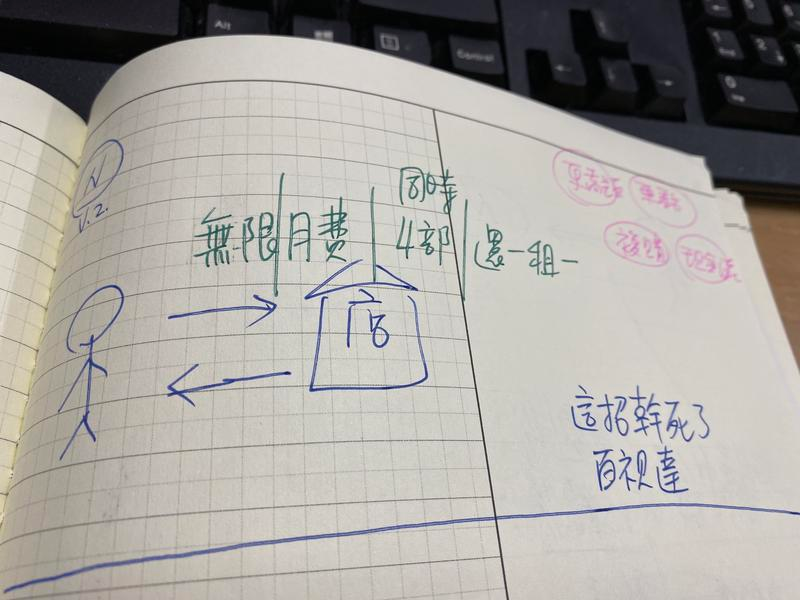 Alt
Control
N
V.2.
無限 月費 同時 還一租一
4部
店
複購 現金流
這招幹死了
百視達